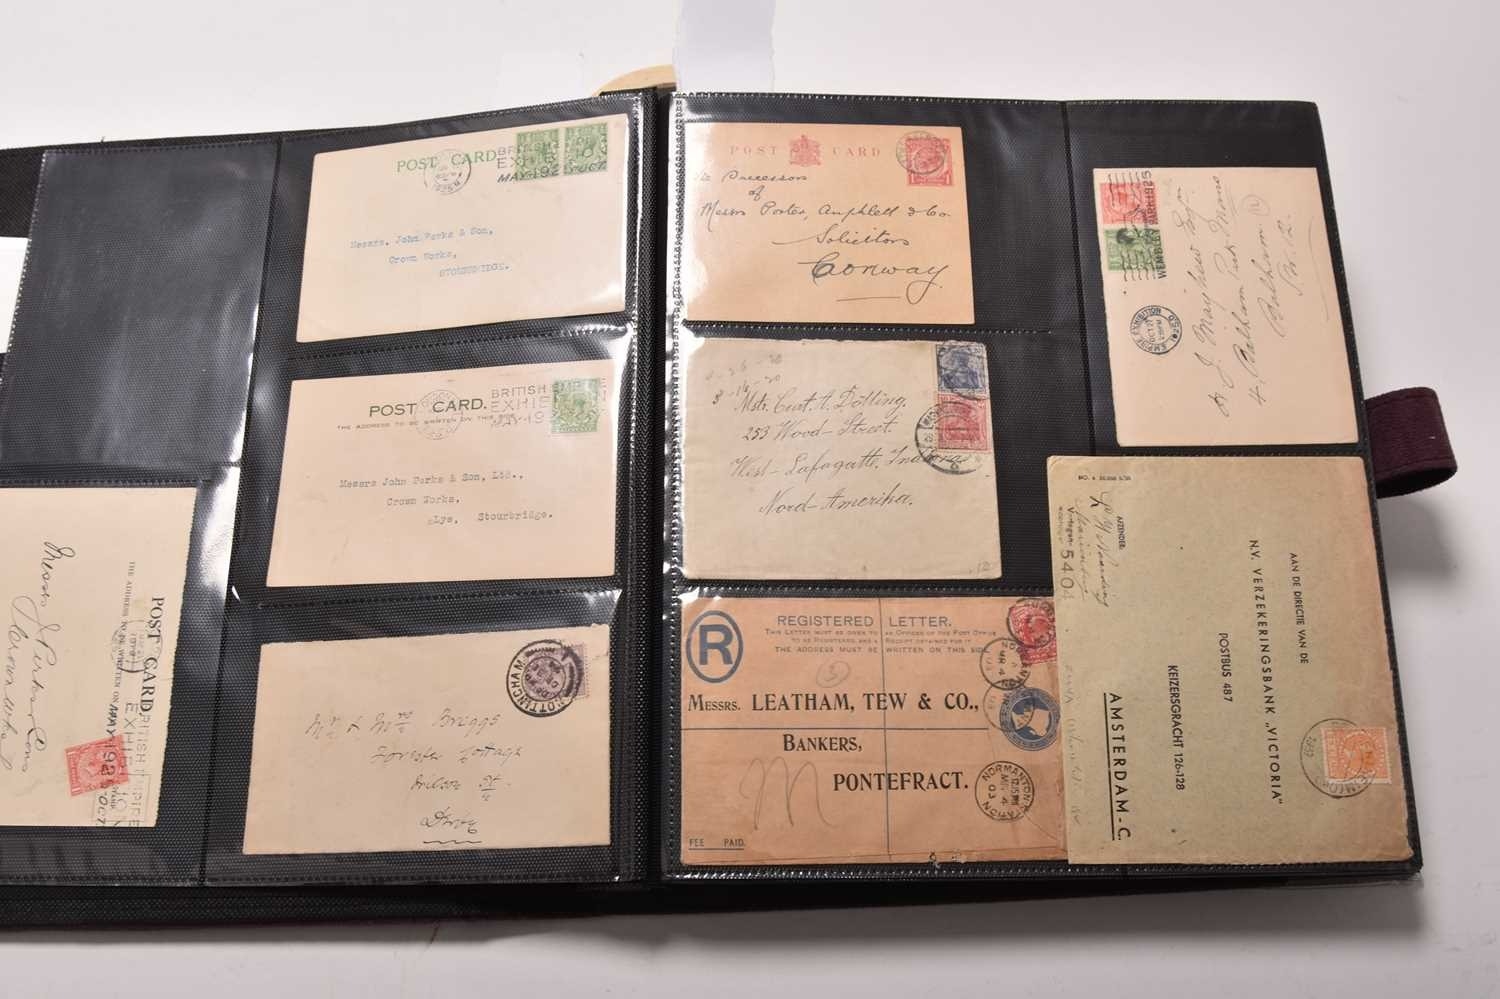 POST CARD
BRITISH
MAY-1925-OCT
Messrs. John Perks & Son,
Crown Works,
STOURBRIDGE.
POST CARD.
THE ADDRESS TO BE WRITTEN ON THIS SIDE
BRITISH EMPIRE
Messrs John Perks & Son, Ltd.,
Crown Works,
Lye, Stourbridge.
POST CARD
THE ADDRESS TO BE WRITTEN ON
Messrs J. Perks & Sons
NOTTINGHAM
Mr & Mrs Briggs
Forester Cottage
Derby
POST CARD
The Successors
of
Messrs Porter, Amphlett & Co
Solicitors
Conway
Mstr. Curt A. Dölling,
253 Wood-Street.
West-Lafayette, Indiana
Nord-Amerika.
R
REGISTERED LETTER.
THIS LETTER MUST BE GIVEN TO AN OFFICER OF THE POST OFFICE
TO BE REGISTERED, AND A RECEIPT OBTAINED FOR IT.
THE ADDRESS MUST BE WRITTEN ON THIS SIDE
MESSRS. LEATHAM, TEW & CO.,
BANKERS,
PONTEFRACT.
FEE PAID.
NORMANTON STATION
MR 4
03
WEMBLEY PARK 1925
EMPIRE EXHIBITION
H. J. Mayhew Esq
4, Balham Park Mans
Balham
S.W.12.
AFZENDER:
5404
AAN DE DIRECTIE VAN DE
N.V. VERZEKERINGSBANK „VICTORIA"
POSTBUS 487
KEIZERSGRACHT 126-128
AMSTERDAM-C.